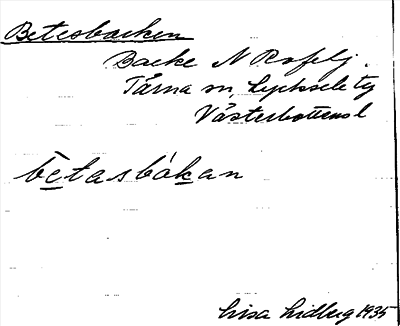 Betesbacken
Backe N Rosfelj.
Tärna sn, Lycksele tg
Västerbottens l
bètasbákan
Lisa Lidberg 1935